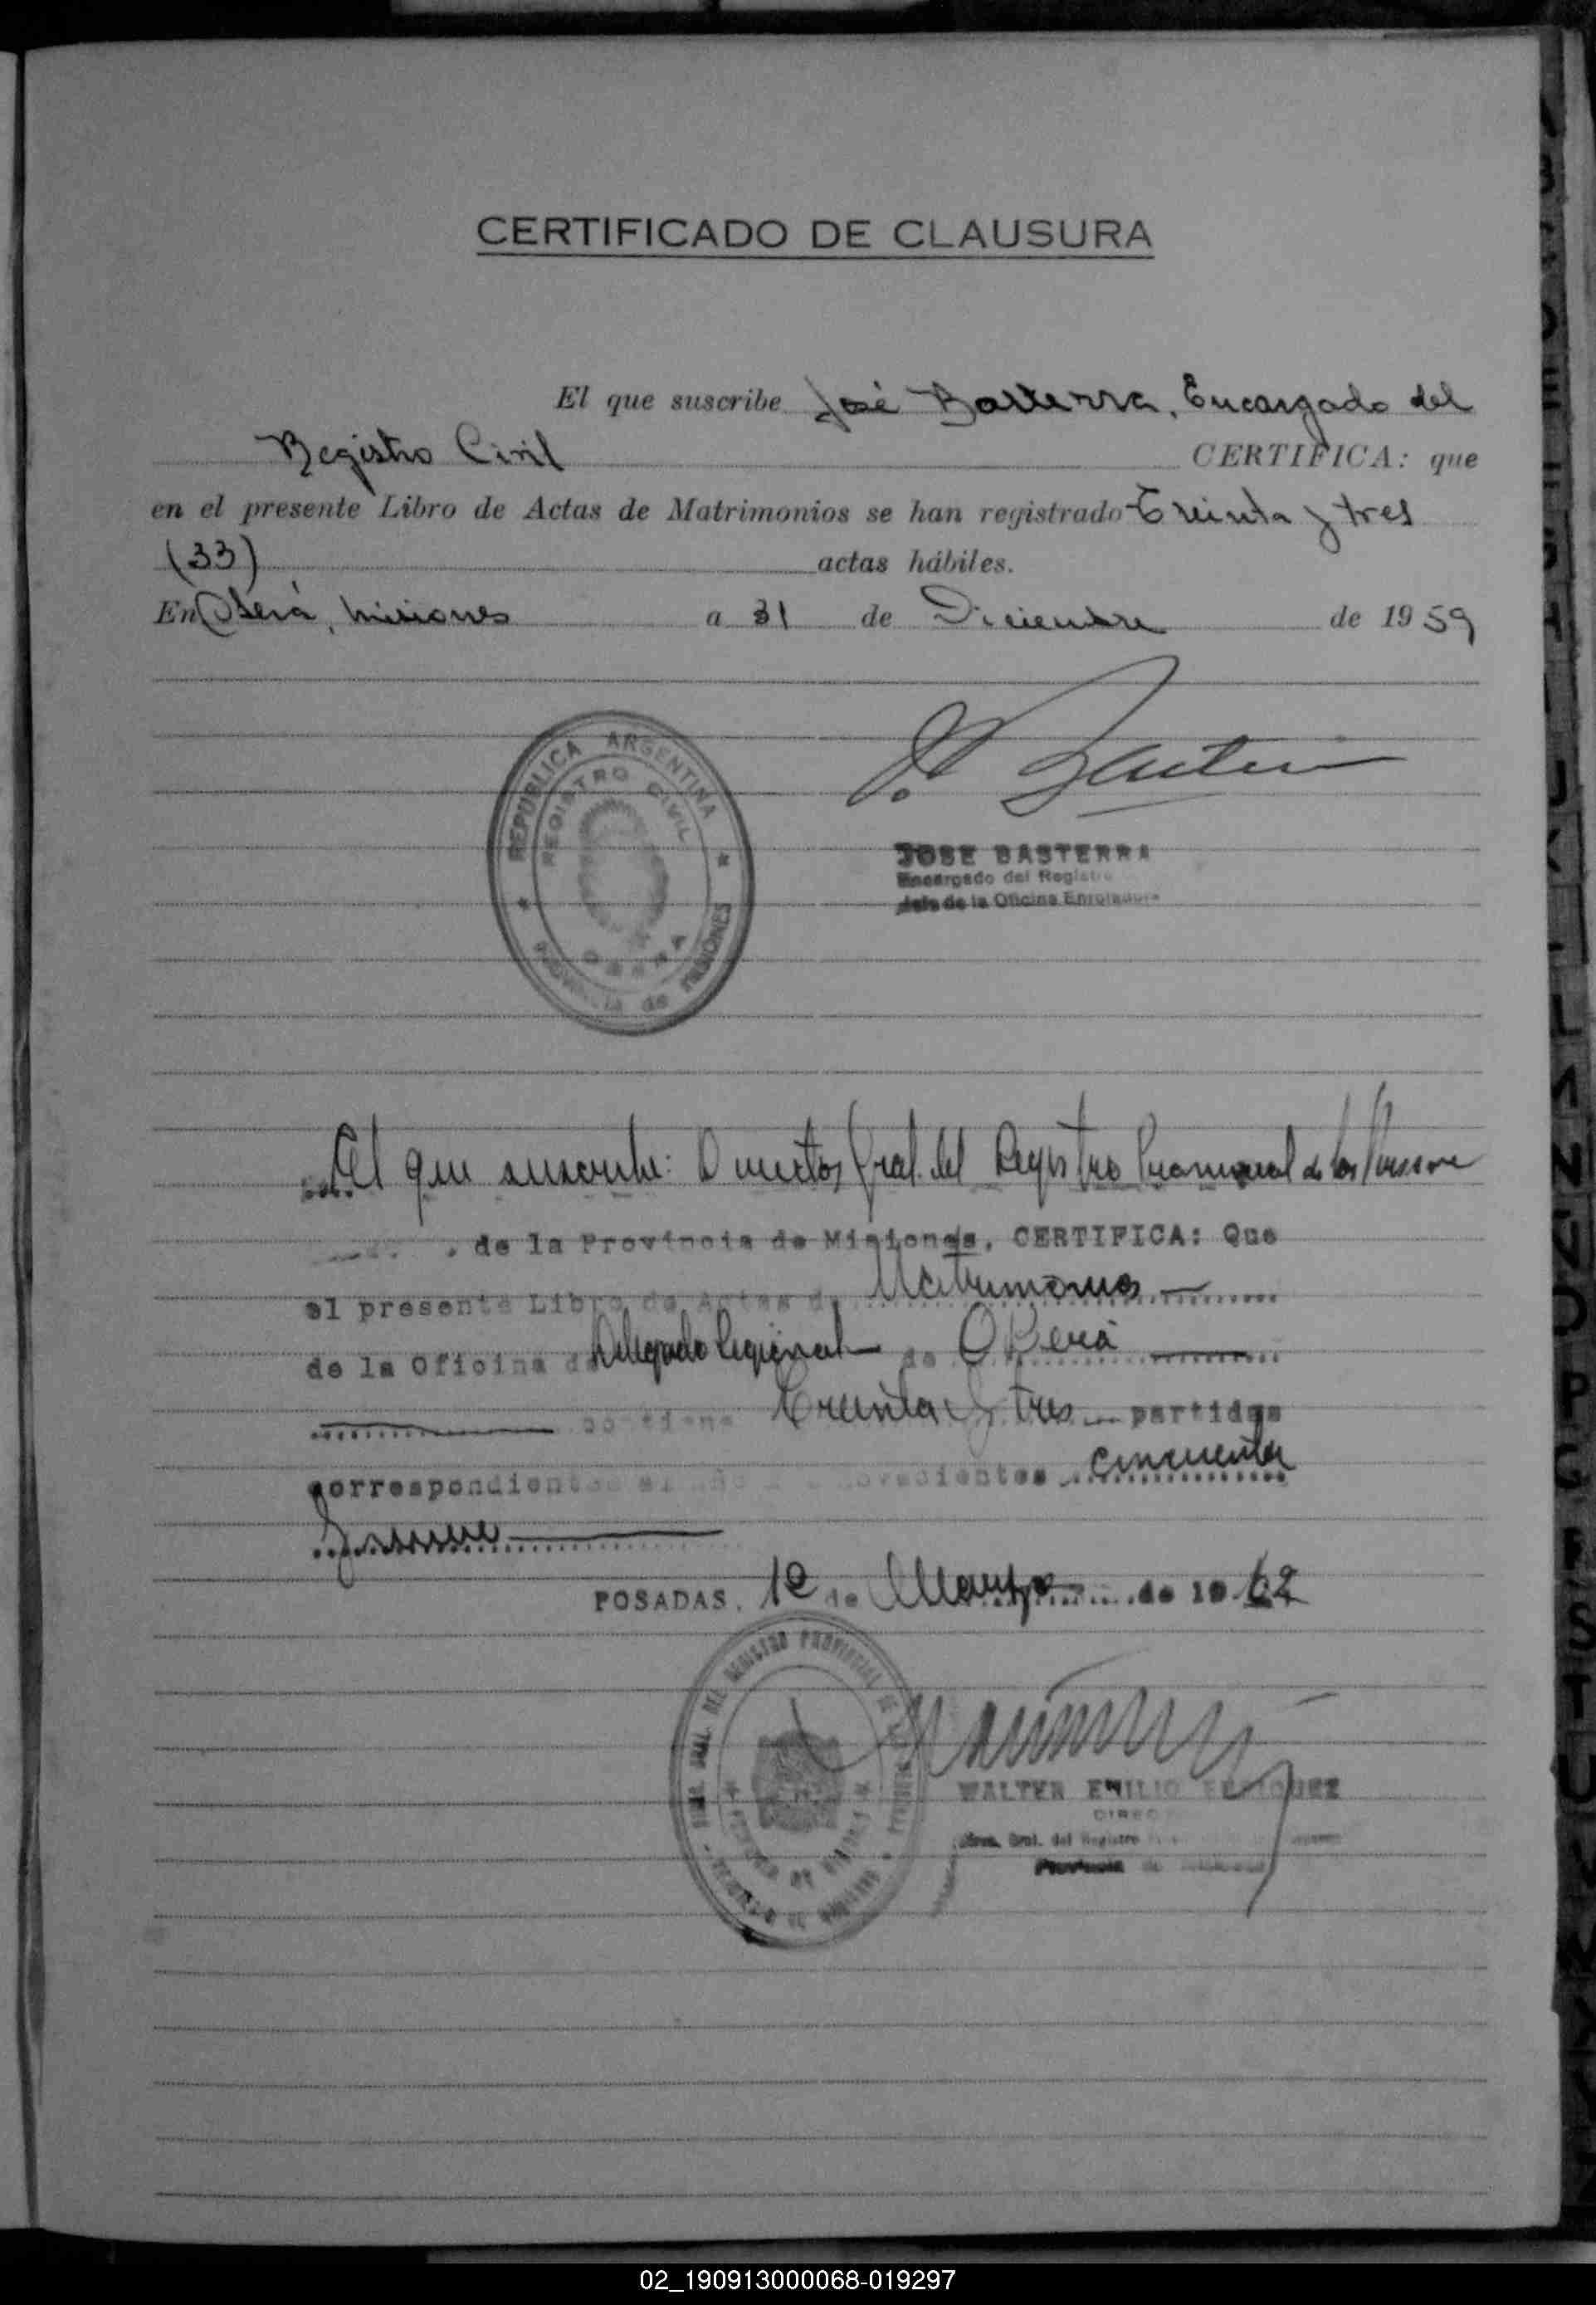 CERTIFICADO DE CLAUSURA
El que suscribe José Basterra, Encargado del
Registro Civil CERTIFICA: que
en el presente Libro de Actas de Matrimonios se han registrado Treinta y tres
(33) actas hábiles.
En Oberá, Misiones a 31 de Diciembre de 1959
REPUBLICA ARGENTINA
REGISTRO CIVIL
OBERA
PROVINCIA de MISIONES
J. Basterra
JOSE BASTERRA
Encargado del Registro
Jefe de la Oficina Enroladora
El que suscribe: Director Gral. del Registro Provincial de las Personas
de la Provincia de Misiones, CERTIFICA: Que
el presente Libro de Actas de Matrimonios
de la Oficina de Delegado Regional de Oberá
contiene Treinta y tres partidas
correspondientes al año novecientos cincuenta
y nueve
POSADAS, 1º de Marzo de 1962
DEL REGISTRO PROVINCIAL DE
WALTER EMILIO
DIREC
Gral. del Registro
Provincia de
02_190913000068-019297